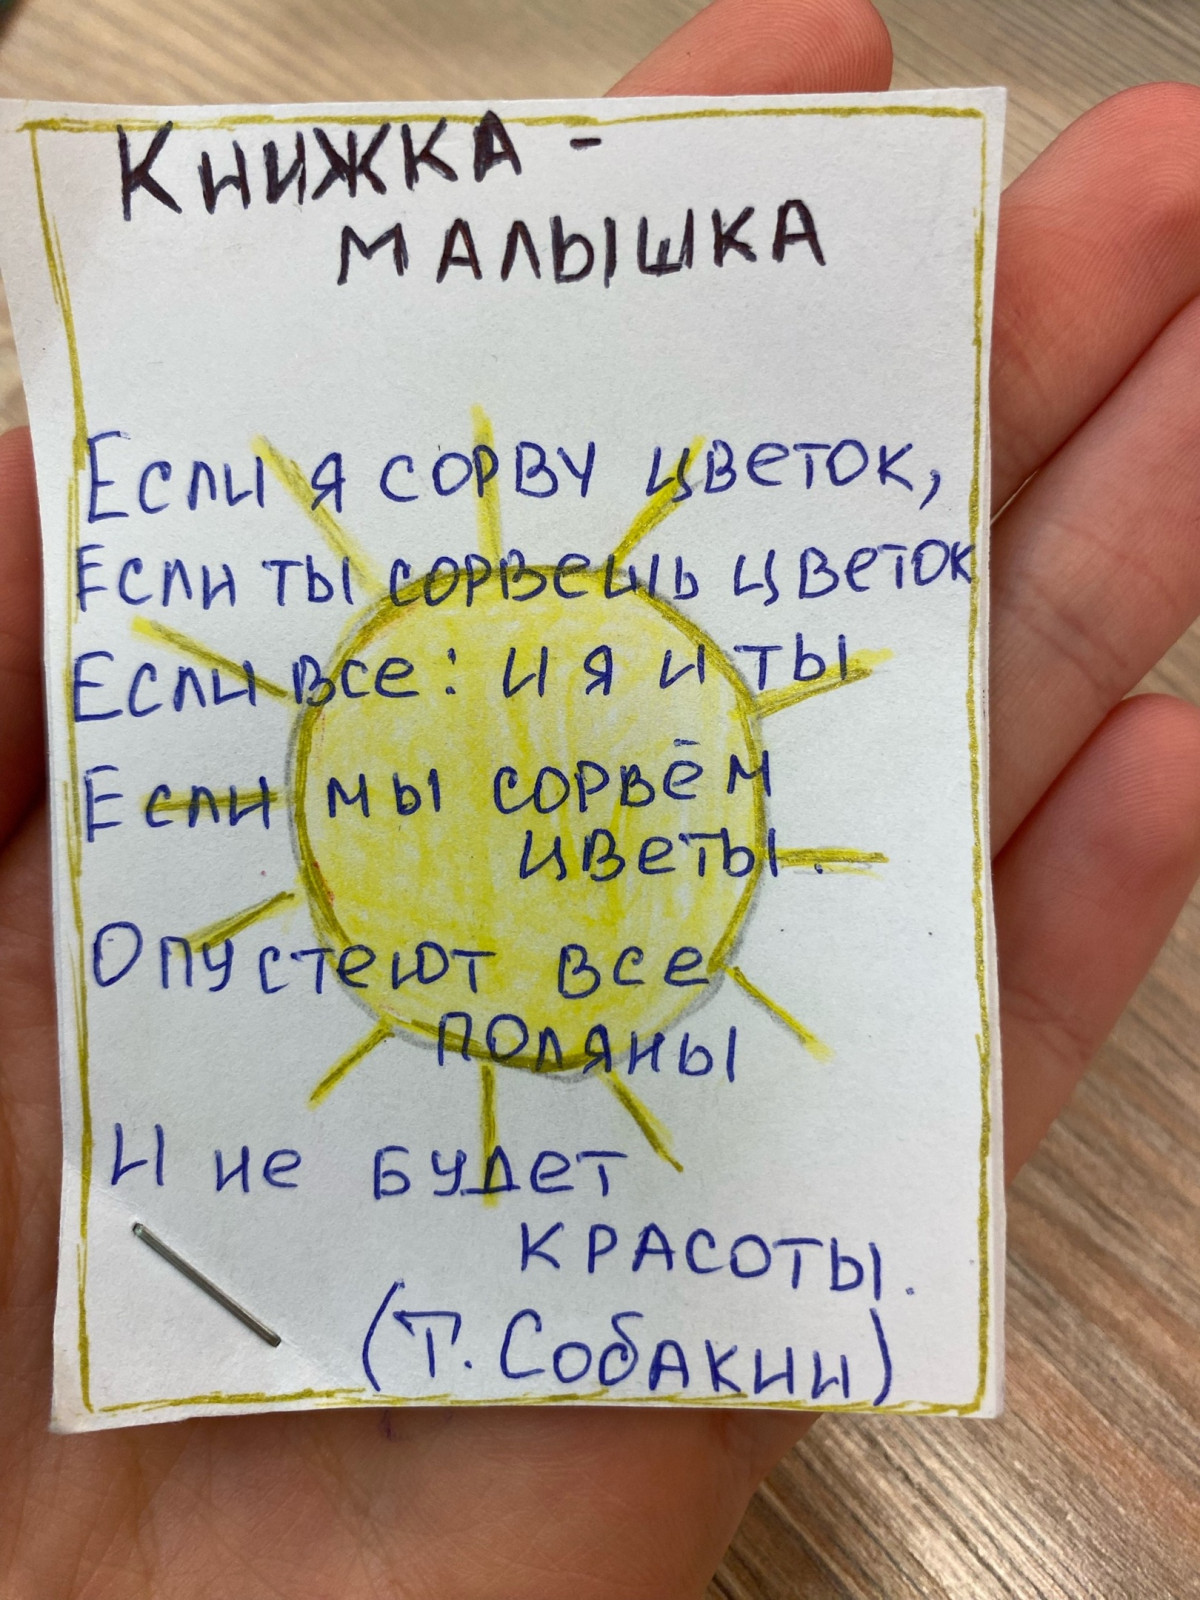 Книжка -
малышка
Если я сорву цветок,
Если ты сорвешь цветок
Если все: и я и ты
Если мы сорвём
цветы.
Опустеют все
поляны
И не будет
красоты.
(Т. Собакин)